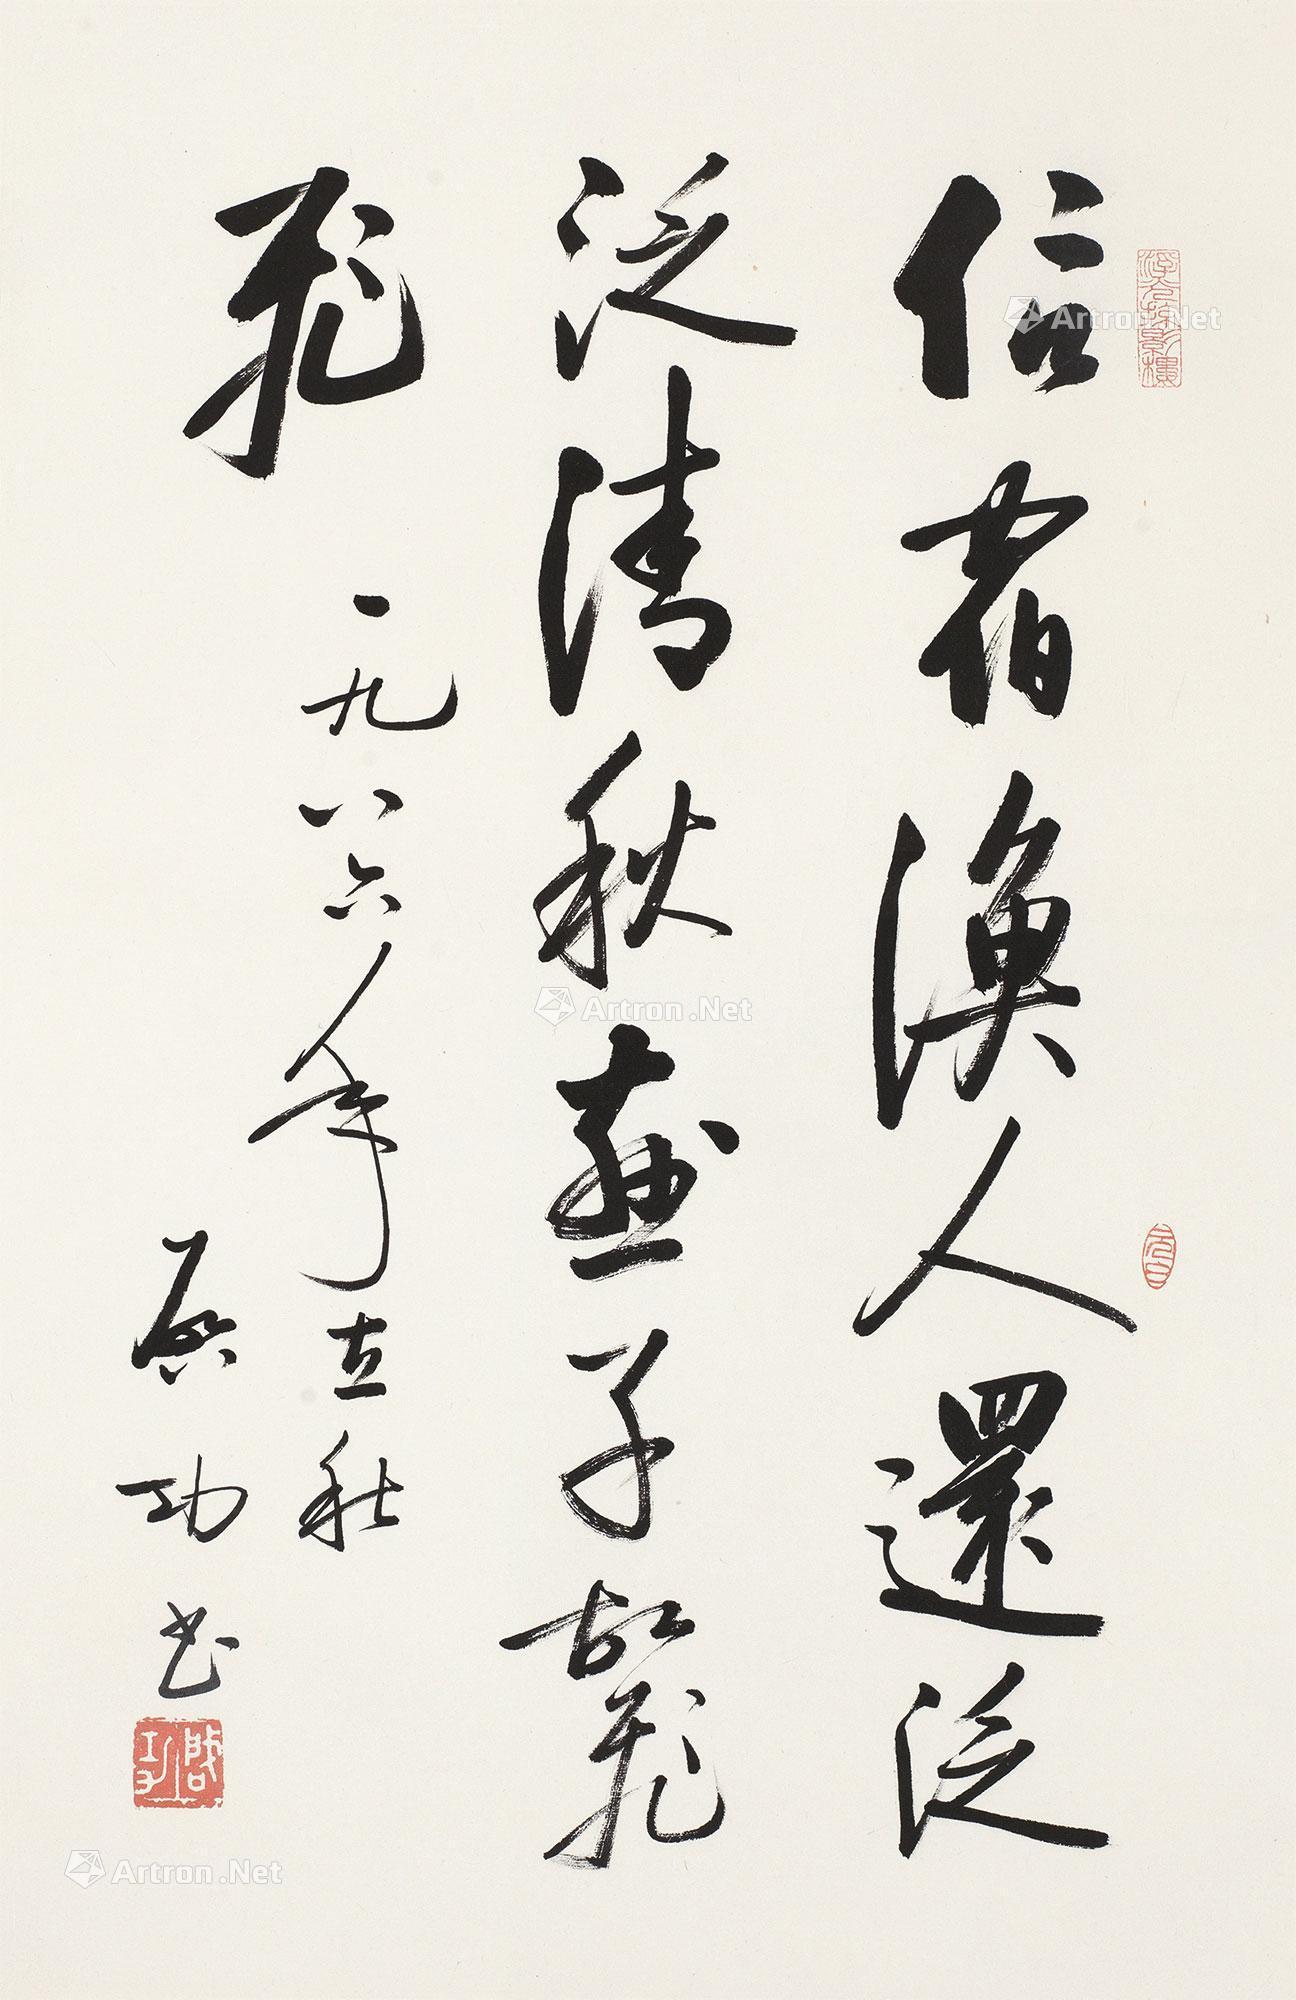 信宿漁人還泛
泛清秋燕子故飛
飛
一九八六年立秋
启功书
启功
浮光掠影樓
元白
Artron.Net
Artron.Net
Artron.Net